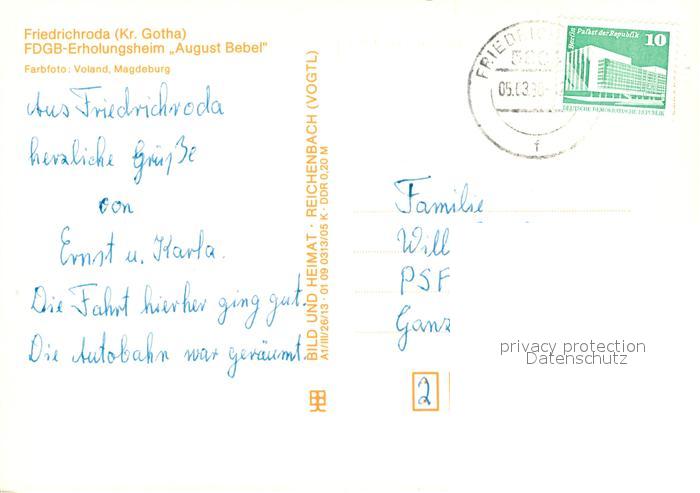 Friedrichroda (Kr. Gotha)
FDGB-Erholungsheim „August Bebel"
Farbfoto: Voland, Magdeburg
Aus Friedrichroda
herzliche Grüße
von
Ernst u. Karla.
Die Fahrt hierher ging gut.
Die Autobahn war geräumt.
BILD UND HEIMAT · REICHENBACH (VOGTL)
A1/III/26/13 · 01 09 0313/05 K · DDR 0,20 M
FRIEDRIC
05.03.
f
Berlin Palast der Republik
10
DEUTSCHE DEMOKRATISCHE REPUBLIK
Familie
Will
PSF
Ganz
2
privacy protection
Datenschutz